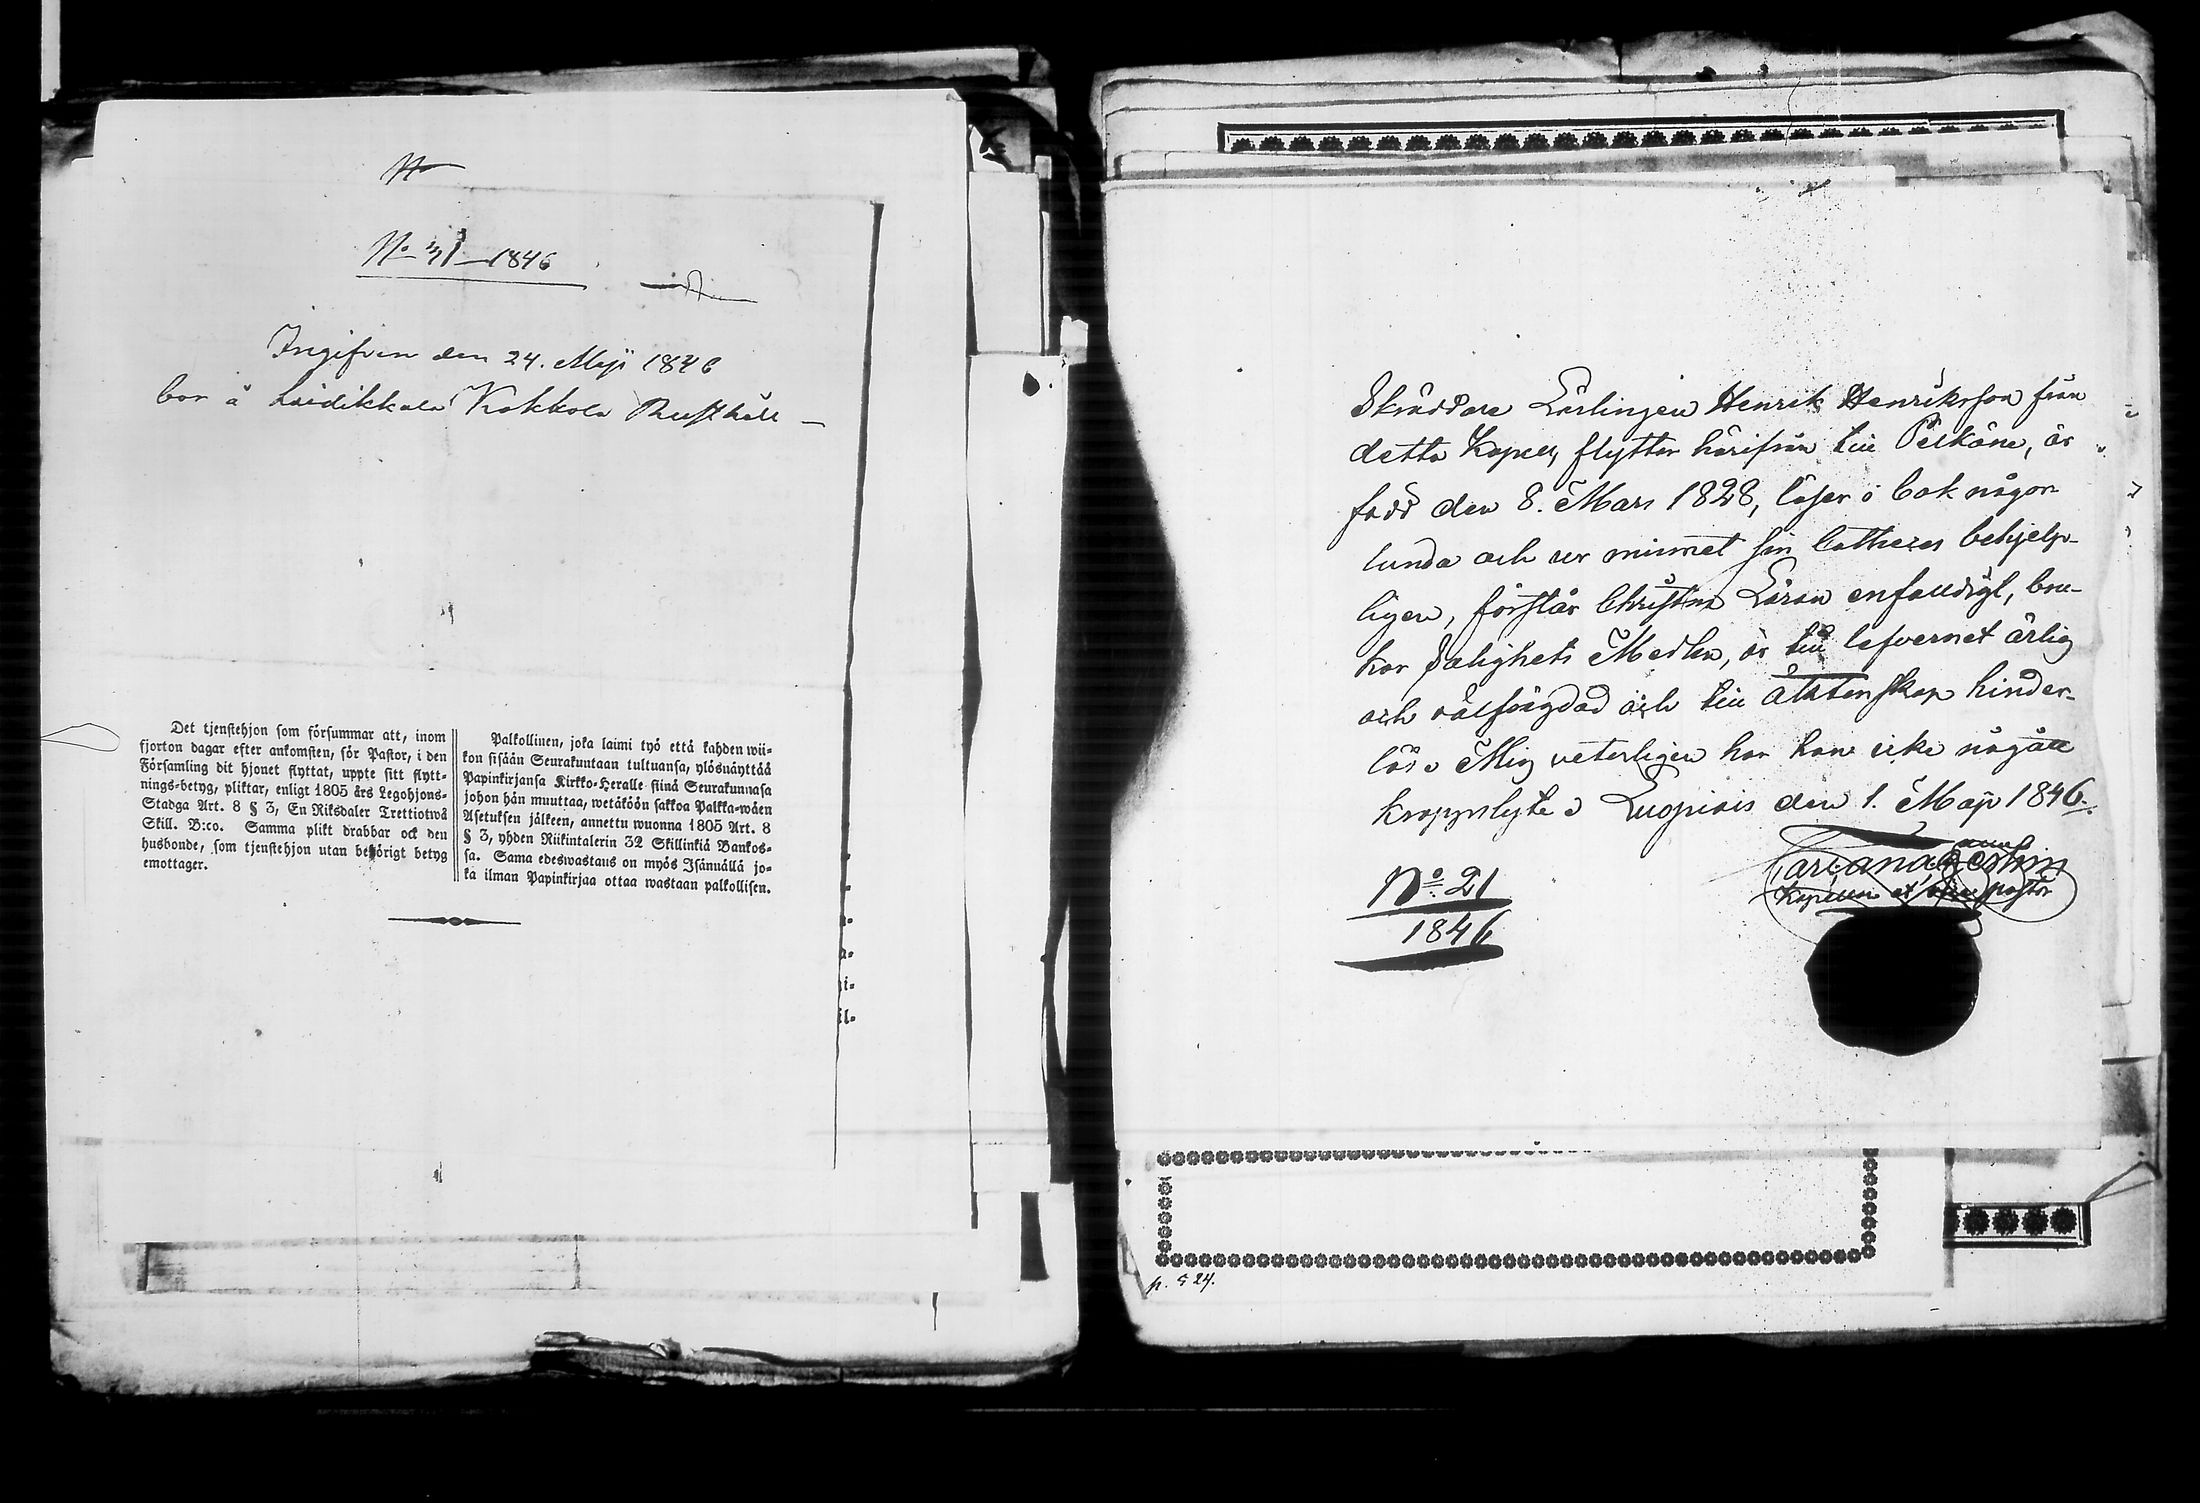 No
No 31 1846
Ingifven den 24. Maji 1846
bor å Laidikkala Kokkola Rusthåll
Det tjenstehjon som försummar att, inom
fjorton dagar efter ankomsten, för Pastor, i den
Församling dit hjonet flyttat, uppte sitt flytt-
nings-betyg, pliktar, enligt 1805 års Legohjons-
Stadga Art. 8 § 3, En Riksdaler Trettiotwå
Skill. B:co. Samma plikt drabbar ock den
husbonde, som tjenstehjon utan behörigt betyg
emottager.
Palkollinen, joka laimi lyö että kahden wii-
kon sisään Seurakuntaan tultuansa, ylösnäyttää
Papinkirjansa Kirkko-Heralle siinä Seurakunnasa
johon hän muuttaa, wetäköön sakkoa Palkka-wäen
Asetuksen jälkeen, annettu wuonna 1805 Art. 8
§ 3, yhden Riikintalerin 32 Skillinkiä Bankos-
sa. Sama edeswastaus on myös Isännällä jo-
ka ilman Papinkirjaa ottaa wastaan palkollisen.
Skräddare Lärlingen Henrik Henriksson från
detta Kapell, flyttar härifrån till Pelkäne, är
född den 8. Mars 1828, läser i bok någor-
lunda och ur minnet sin Catheces behjelp-
ligen, förstår Christna Läran enfalldigt, bru-
kar Salighets Medlen, är till lefvernet ärlig
och välfrägdad och till äktenskap hinder-
lös. Mig veterligen har han icke någått
kroppslyte. Luopiois den 1. Maji 1846.
No 21
1846
pastor
p. 524.